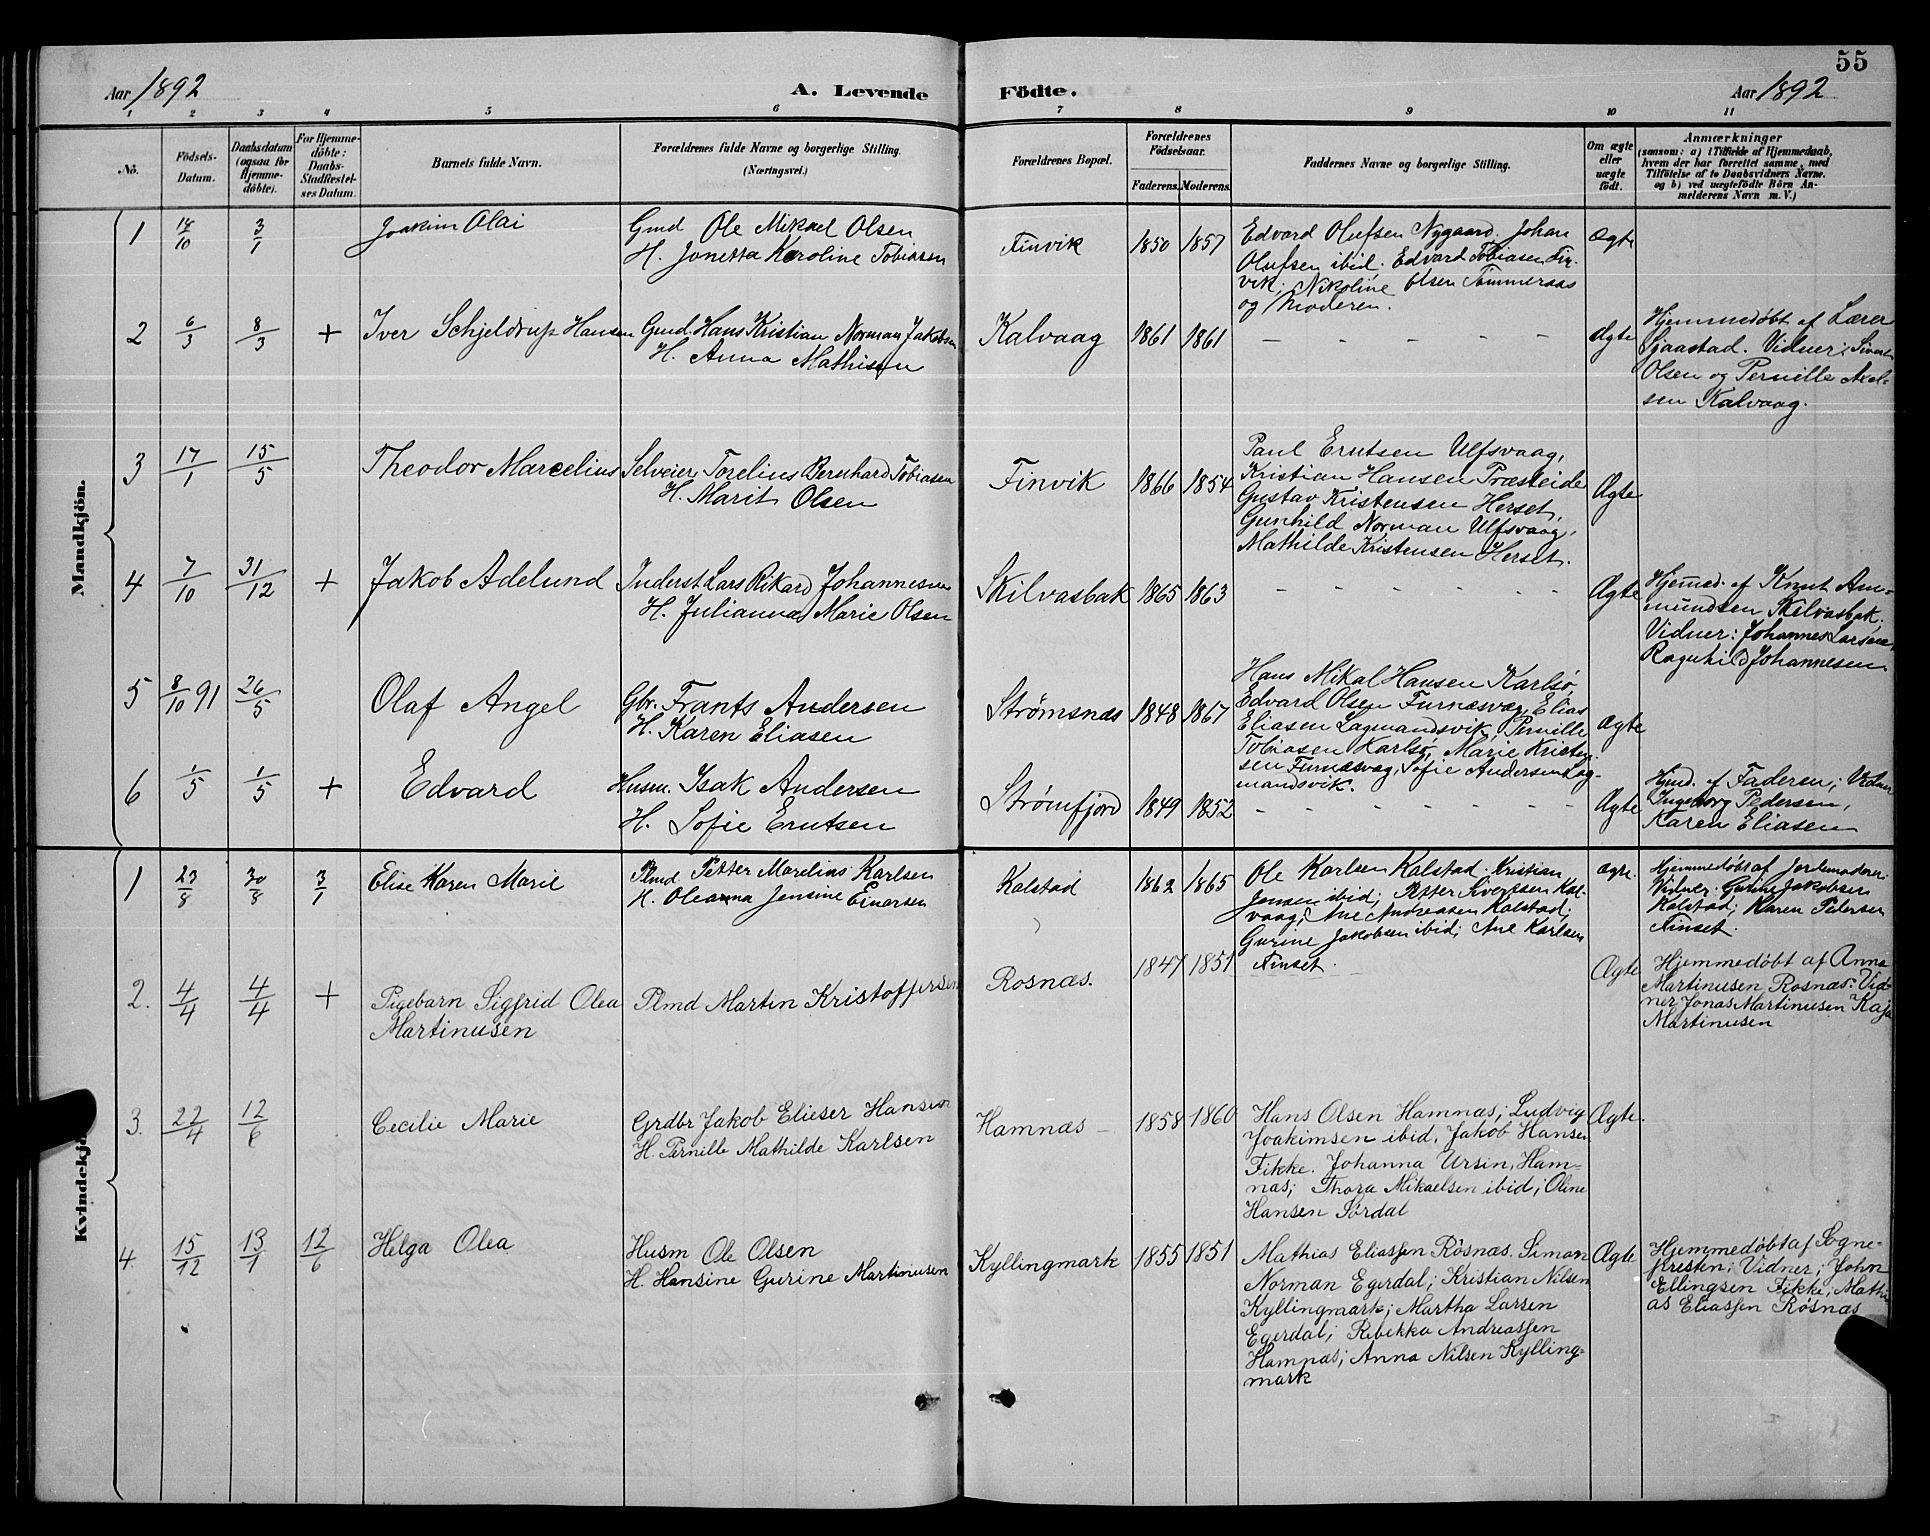 55
Aar 1892
A. Levende Födte.
Aar 1892
1 2 3 4 5 6 7 8 9 10 11
No.
Födsels-Datum.
Daabsdatum (ogsaa for Hjemmedöbte).
For Hjemmedöbte: Daabs-Stadfæstelses Datum.
Barnets fulde Navn.
Forældrenes fulde Navne og borgerlige Stilling.
(Næringsvei.)
Forældrenes Bopæl.
Forældrenes Födselsaar.
Faderens. Moderens.
Faddernes Navne og borgerlige Stilling.
Om ægte eller uægte födt.
Anmærkninger
(saasom: a) i Tilfælde af Hjemmedaab, hvem der har forrettet samme, med Tilföielse af to Daabsvidners Navne. og b) ved uægtefödte Börn Anmelderens Navn m. V.)
Mandkjön.
1 14/10 3/1 Joakim Olai
Gmd Ole Mikael Olsen
H. Janetta Karoline Tobiasen
Finvik 1850 1857
Edvard Olufsen Nygaard. Johan
Olufsen ibid. Edvard Tobiasen Fin-
vik; Nikoline Olsen Tømmeraas
og Moderen.
Ægte
2 6/3 8/3 + Iver Schjeldrup Hansen
Gmd. Hans Kristian Norman Jakobsen
H. Anna Mathisen
Kalvaag 1861 1861
- - - - - -
Ægte
Hjemmedøbt af Lærer
Sjaastad. Vidner: Sivert
Olsen og Pernille Axel-
sen Kalvaag.
3 17/1 15/5 Theodor Marcelius
Selveier Torelius Bernhard Tobiasen
H. Marit Olsen
Finvik 1866 1854
Paul Erntsen Ulfsvaag,
Kristian Hansen Træsleide
Gustav Kristensen Herset,
Gunhild Norman Ulfsvaag,
Mathilde Kristensen Herset.
Ægte
4 7/10 31/12 + Jakob Adelund
Inderst Lars Rikard Johannesen
H. Julianna Marie Olsen
Skilvasbak 1865 1863
- - - - - -
Ægte
Hjemed. af Knut Am-
mundsen Skilvasbak.
Vidner: Johannes Larsen,
Ragnhild Johannesen.
5 8/10 91 26/5 Olaf Angel
Gbr. Frants Andersen
H. Karen Eliasen
Strømsnæs 1848 1867
Hans Mikal Hansen Karlsø,
Edvard Olsen Furnæsvæg, Elias
Eliasen Lagmandsvik, Pernille
Tobiasen Karlsø, Marie Kristen-
sen Furnæsvaag, Sofie Andersen Lag-
mandsvik.
Ægte
6 1/5 1/5 + Edvard
Husm. Isak Andersen
H. Sofie Erntsen
Strømfjord 1849 1852
- - - - - -
Ægte
Hjmd. af Faderen; Vidner
Ingeborg Pedersen,
Karen Eliasen
Kvindekjön.
1 23/8 30/8 3/1 Elise Karen Marie
Plmd Petter Marelius Karlsen
H. Oleanna Jensine Einarsen
Kalstad 1862 1865
Ole Karlsen Kalstad. Kristian
Jensen ibid; Petter Sivertsen Kal-
vaag; Ane Andreasen Kalstad;
Gurine Jakobsen ibid; Ane Karlsen
Finset.
Ægte.
Hjemmedøbt af Jordemoderen
Vidner: Gurine Jakobsen
Kalstad; Karen Pedersen
Finset.
2. 4/4 4/4 + Pigebarn Sigfrid Olea
Martinusen
Plmd Martin Kristoffersen
Rosnæs. 1847 1851
Ægte
Hjemmedøbt af Anna
Martinusen Rosnæs. Vid-
ner Jonas Martinusen Kaja
Martinusen
3. 22/4 12/6 Cecilie Marie
Grdbr Jakob Elieser Hansen
H. Pernille Mathilde Karlsen
Hamnæs - 1858 1860
Hans Olsen Hamnæs; Ludvig
Joakimsen ibid, Jakob Hansen
Fikke. Johanna Ursin, Ham-
næs; Thora Mikaelsen ibid; Oline
Hansen Sørdal
Ægte.
4. 15/12 13/1 12/6 Helga Olea
Husm Ole Olsen
H. Hansine Gurine Martinusen
Kyllingmark 1855 1851
Mathias Eliassen Røsnæs. Simon
Norman Egerdal; Kristian Nilsen
Kyllingmark; Martha Larsen
Egerdal; Rebekka Andreassen
Hamnæs; Anna Nilsen Kylling-
mark
Ægte
Hjemmedøbt af Sogne-
presten; Vidner; John
Ellingsen Fikke; Mathi
as Eliassen Røsnæs